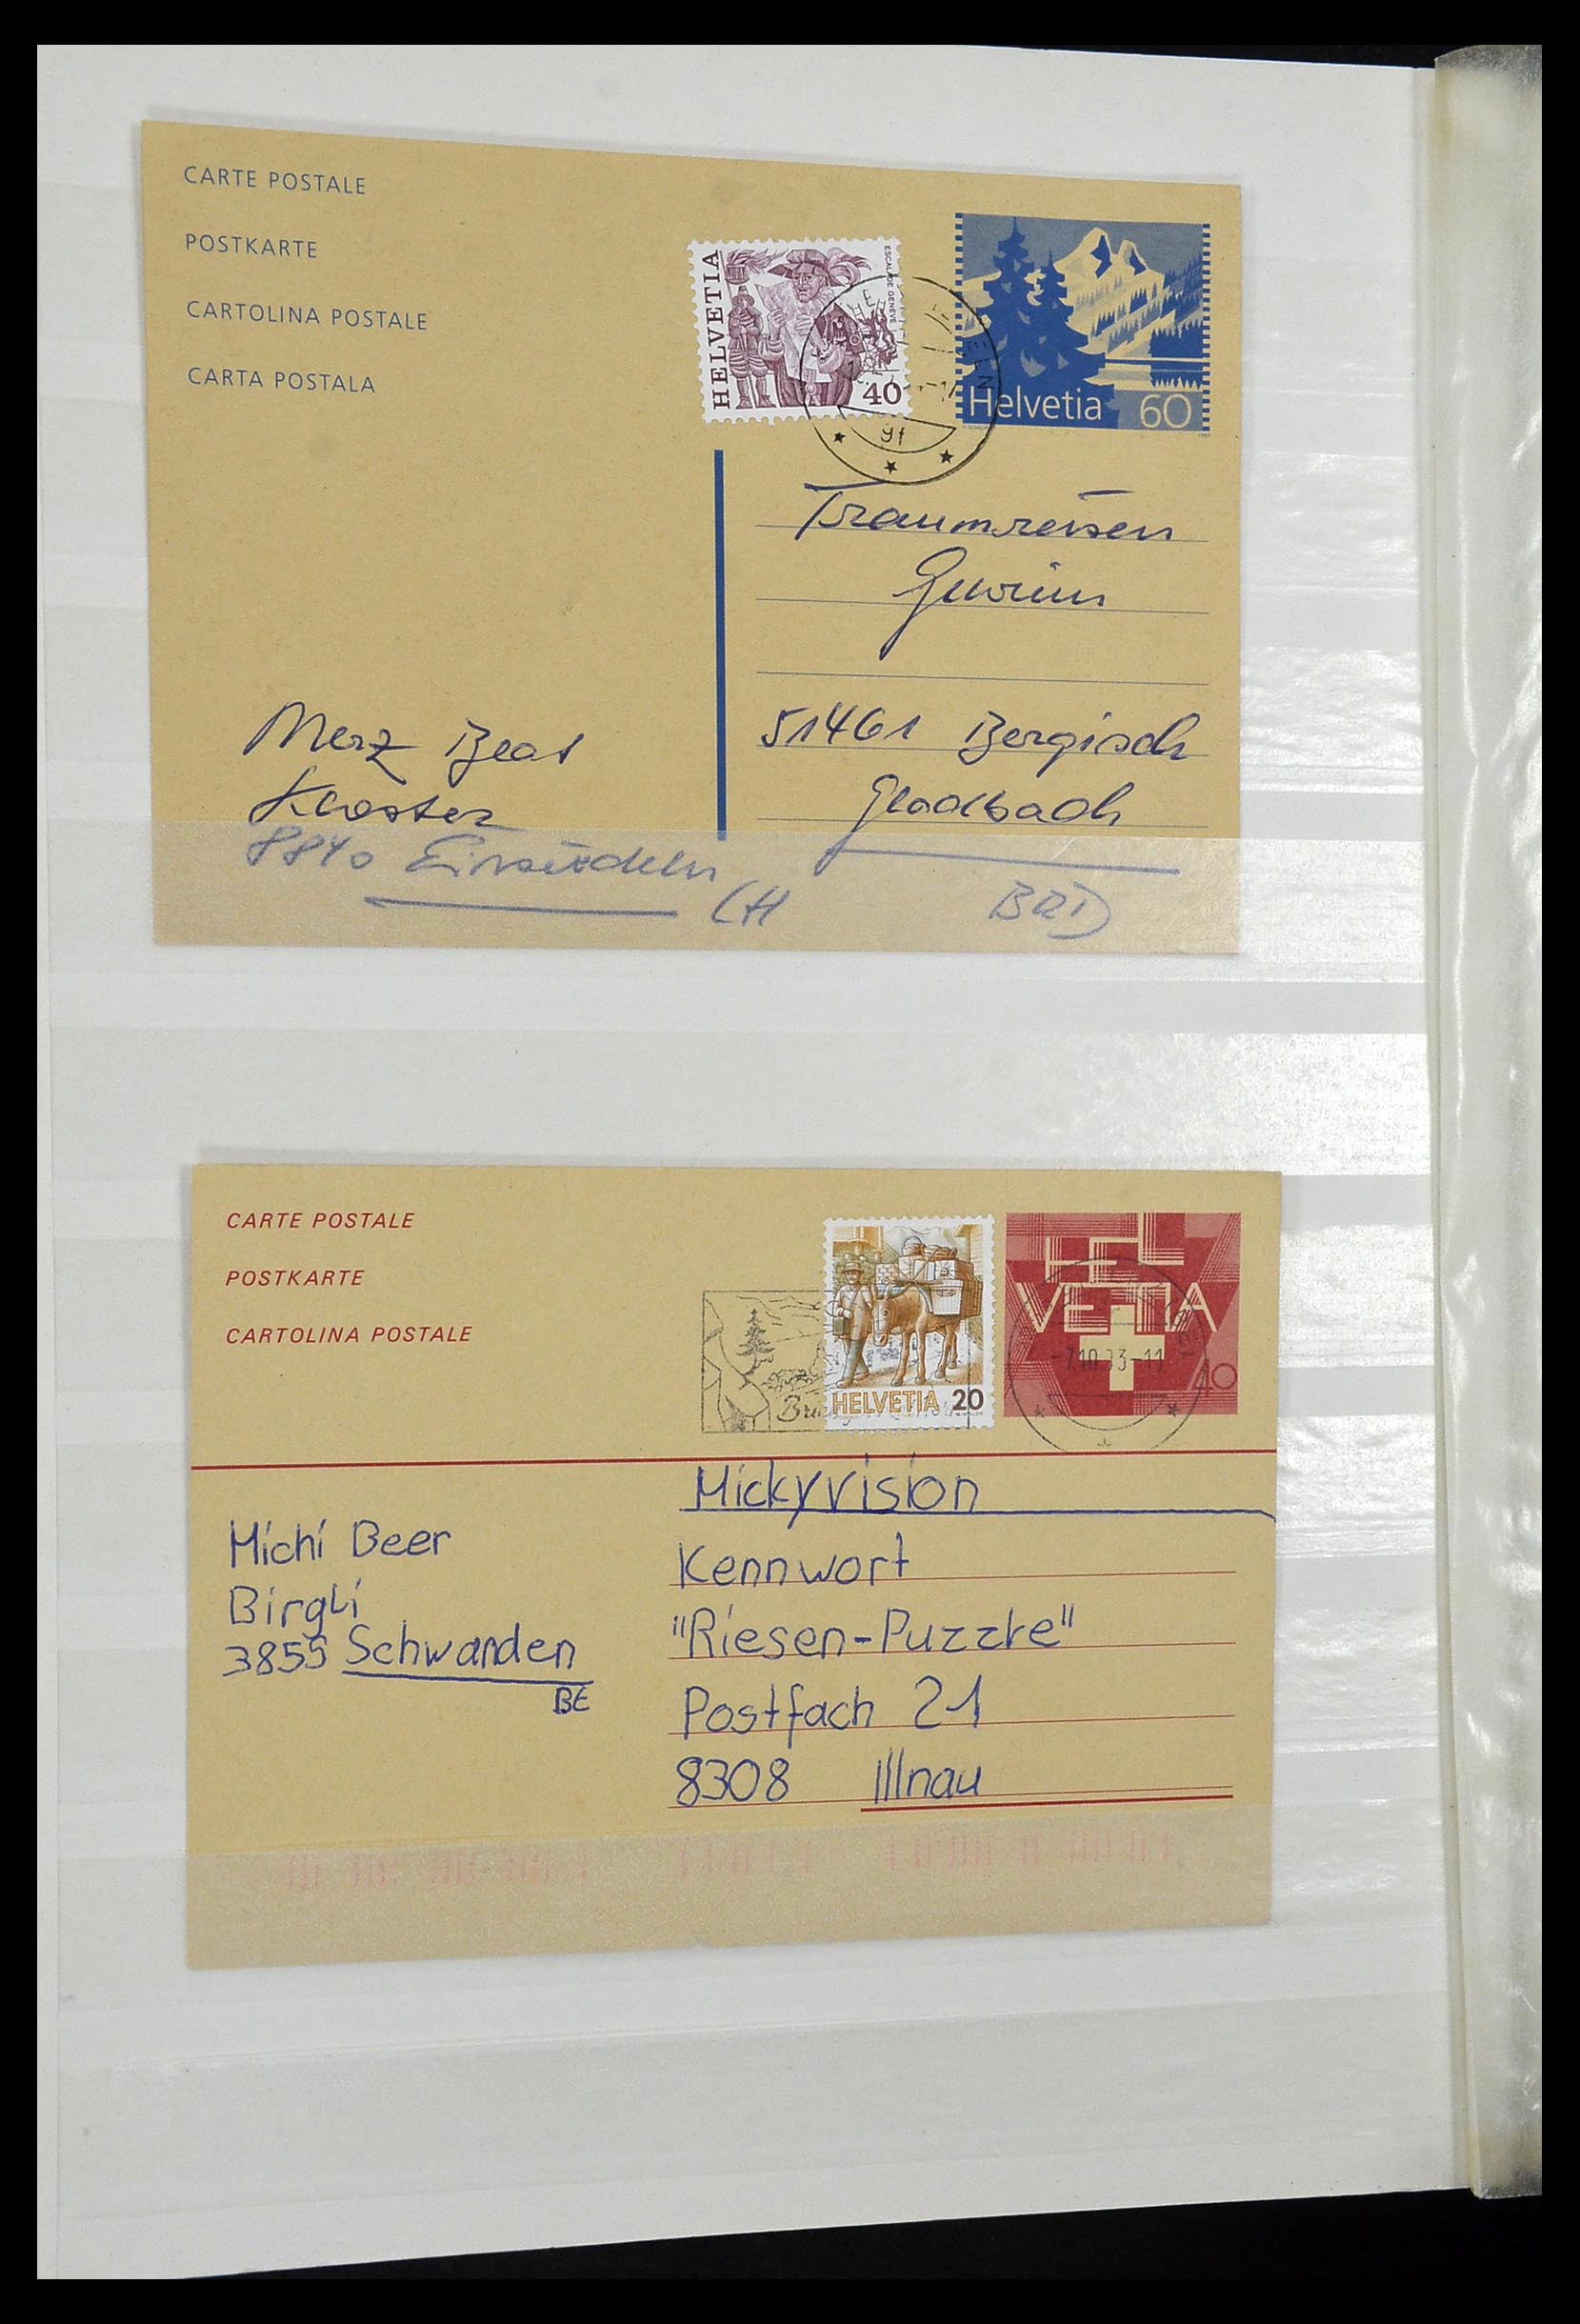 CARTE POSTALE
POSTKARTE
CARTOLINA POSTALE
CARTA POSTALA
HELVETIA
ESCALADE GENÈVE
40
Helvetia 60
Traumreisen
Gewinn
51461 Bergisch
Gladbach
BRD
Merz Beat
Kloster
8840 Einsiedeln
CH
CARTE POSTALE
POSTKARTE
CARTOLINA POSTALE
HELVETIA 20
HEL
VETIA
40
Mickyvision
Kennwort
"Riesen-Puzzle"
Postfach 21
8308 Illnau
Michi Beer
Birgli
3855 Schwanden
BE